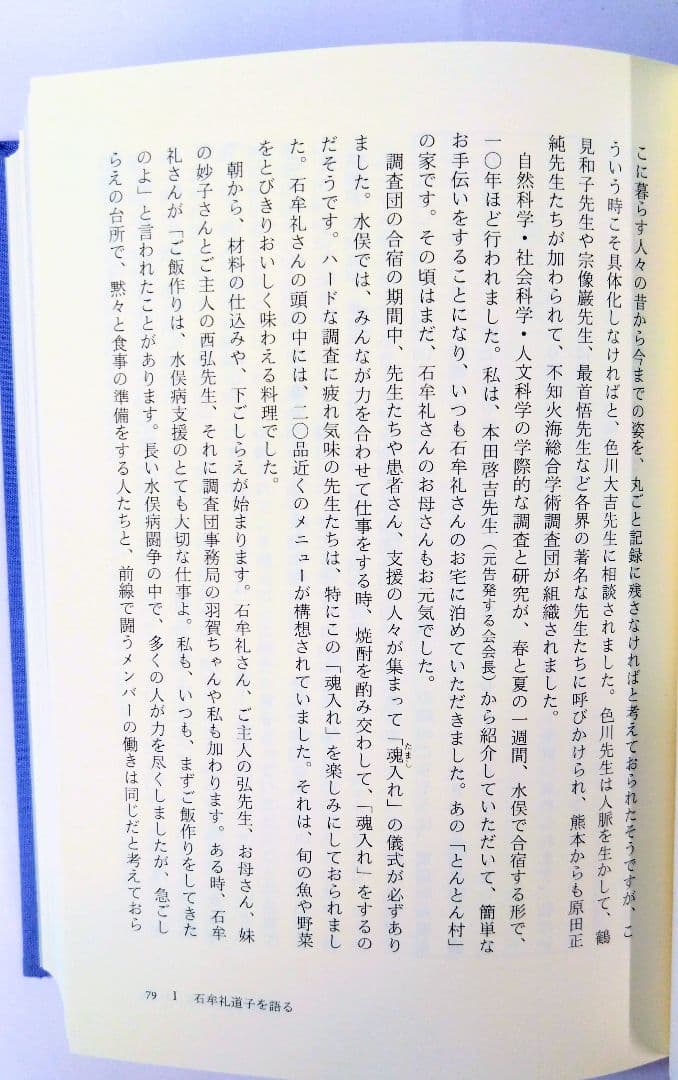 こに暮らす人々の昔から今までの姿を、丸ごと記録に残さなければと考えておられたそうですが、こ
ういう時こそ具体化しなければと、色川大吉先生に相談されました。色川先生は人脈を生かして、鶴
見和子先生や宗像巌先生、最首悟先生など各界の著名な先生たちに呼びかけられ、熊本からも原田正
純先生たちが加わられて、不知火海総合学術調査団が組織されました。
自然科学・社会科学・人文科学の学際的な調査と研究が、春と夏の一週間、水俣で合宿する形で、
一〇年ほど行われました。私は、本田啓吉先生（元告発する会会長）から紹介していただいて、簡単な
お手伝いをすることになり、いつも石牟礼さんのお宅に泊めていただきました。あの「とんとん村」
の家です。その頃はまだ、石牟礼さんのお母さんもお元気でした。
調査団の合宿の期間中、先生たちや患者さん、支援の人々が集まって「魂入れ」の儀式が必ずあり
たまし
ました。水俣では、みんなが力を合わせて仕事をする時、焼酎を酌み交わして、「魂入れ」をするの
だそうです。ハードな調査に疲れ気味の先生たちは、特にこの「魂入れ」を楽しみにしておられまし
た。石牟礼さんの頭の中には、二〇品近くのメニューが構想されていました。それは、旬の魚や野菜
をとびきりおいしく味わえる料理でした。
朝から、材料の仕込みや、下ごしらえが始まります。石牟礼さん、ご主人の弘先生、お母さん、妹
の妙子さんとご主人の西弘先生、それに調査団事務局の羽賀ちゃんや私も加わります。ある時、石牟
礼さんが「ご飯作りは、水俣病支援のとても大切な仕事よ。私も、いつも、まずご飯作りをしてきた
のよ」と言われたことがあります。長い水俣病闘争の中で、多くの人が力を尽くしましたが、急ごし
らえの台所で、黙々と食事の準備をする人たちと、前線で闘うメンバーの働きは同じだと考えておら
79 I 石牟礼道子を語る